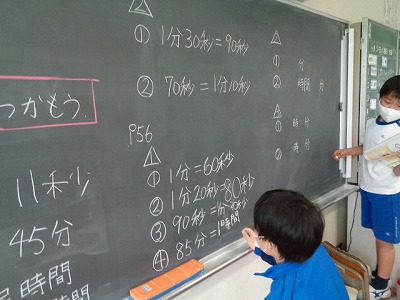 ① 1分30秒=90秒
② 70秒=1分10秒
つかもう.
11秒
45分
時間
P56
① 1分=60秒
② 1分20秒=80秒
③ 90秒=1分30秒
④ 85分=1時間
① 分
② 時間 分
① 時 分
② 時 分